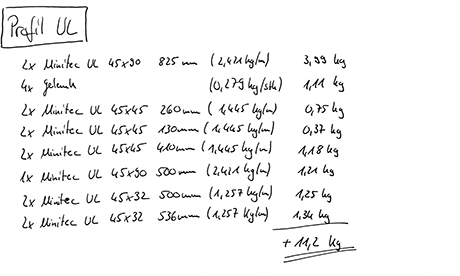 Profil UL
2x Minitec UL 45x90 825mm (2,421 kg/m) 3,99 kg
4x Gelenk (0,279 kg/stk) 1,11 kg
2x Minitec UL 45x45 260mm (1,445 kg/m) 0,75 kg
2x Minitec UL 45x45 130mm (1,445 kg/m) 0,37 kg
2x Minitec UL 45x45 410mm (1,445 kg/m) 1,18 kg
1x Minitec UL 45x90 500mm (2,421 kg/m) 1,21 kg
2x Minitec UL 45x32 500mm (1,257 kg/m) 1,25 kg
2x Minitec UL 45x32 536mm (1,257 kg/m) 1,34 kg
+ 11,2 kg